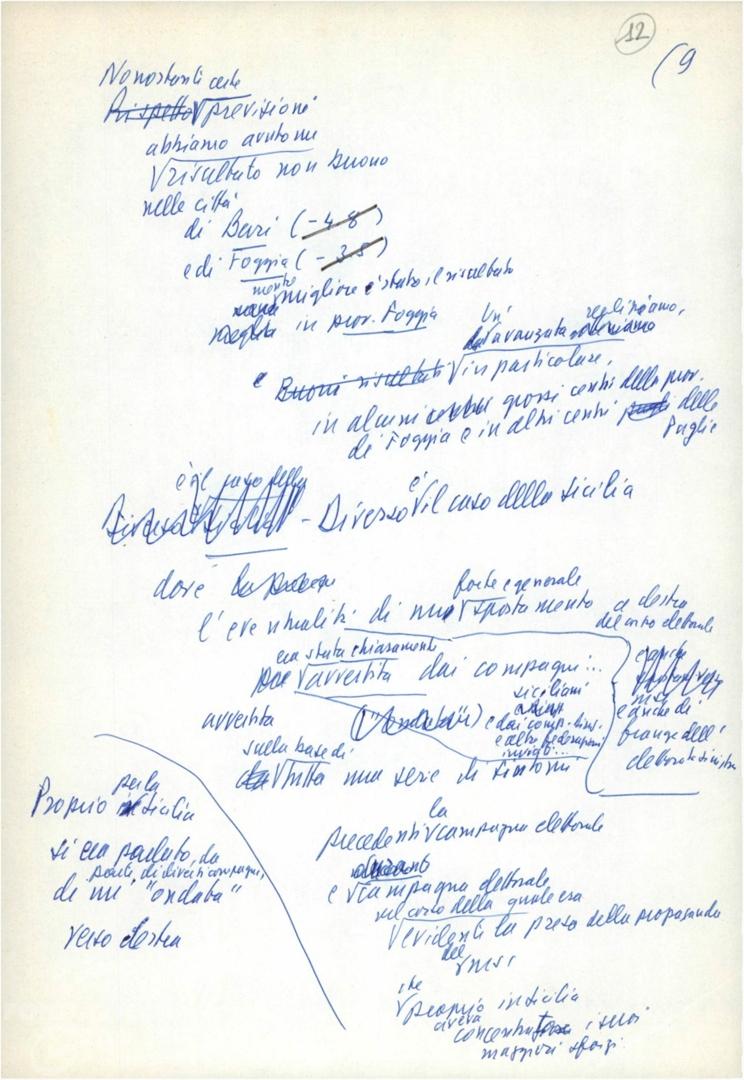 12
(9
Nonostante certe
Rispetto previsioni
abbiamo avuto un
risultato non buono
nelle città
di Bari (-4.8)
e di Foggia (-3.5)
migliore è stato il risultato
meglio in prov. Foggia
Un' registriamo,
avanzata
e Buoni risultati in particolare,
in alcuni centri grossi centri della prov.
di Foggia e in altri centri delle
Puglie
è il caso della
- Diverso è il caso della Sicilia
dove
forte e generale
l'eventualità di uno spostamento a destra
del corpo elettorale
era stata chiaramente
avvertita dai compagni...
siciliani
avvertita ("ondata")
e dai comp.
e altre federazioni
e anche di
frange dell'
elettorato sinistra
sulla base di
tutta una serie di sintomi
per la
Proprio in Sicilia
si era parlato, da
parte di diversi compagni,
di un' "ondata"
verso destra
la
precedente campagna elettorale
e campagna elettorale
nel corso della quale era
evidente la presa della propaganda
del
MSI
che
proprio in Sicilia
aveva
concentrato i suoi
maggiori sforzi.